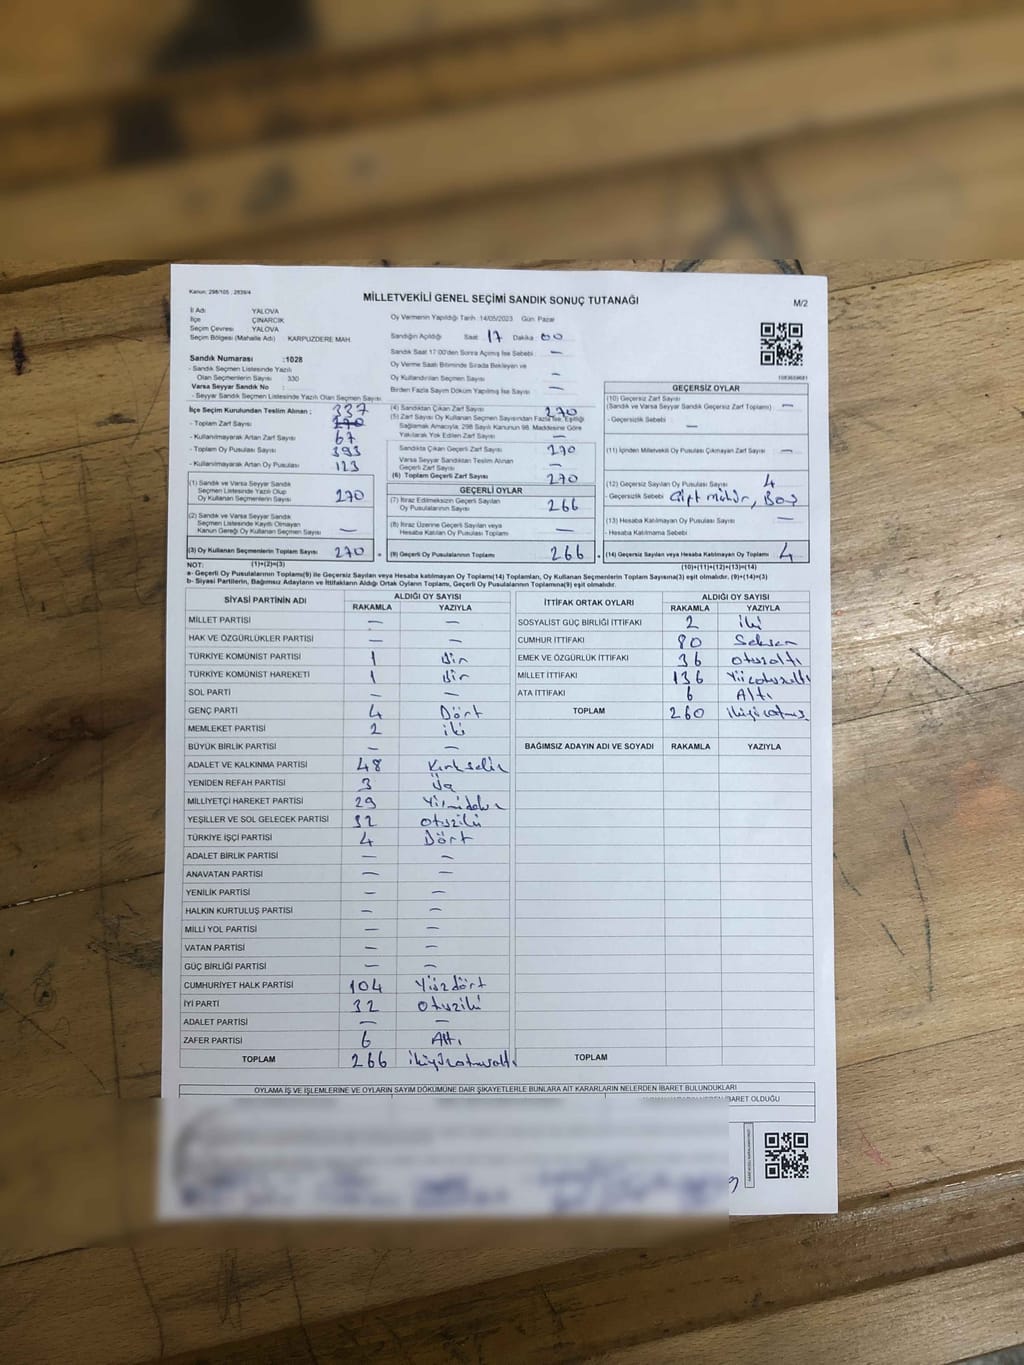 Kanun: 298/105 , 2839/4
MİLLETVEKİLİ GENEL SEÇİMİ SANDIK SONUÇ TUTANAĞI
M/2
İl Adı : YALOVA
İlçe : ÇINARCIK
Seçim Çevresi : YALOVA
Seçim Bölgesi (Mahalle Adı) : KARPUZDERE MAH.
Sandık Numarası :1028
- Sandık Seçmen Listesinde Yazılı
Olan Seçmenlerin Sayısı : 330
Varsa Seyyar Sandık No :
- Seyyar Sandık Seçmen Listesinde Yazılı Olan Seçmen Sayısı
İlçe Seçim Kurulundan Teslim Alınan ; 337
- Toplam Zarf Sayısı 270
- Kullanılmayarak Artan Zarf Sayısı 67
- Toplam Oy Pusulası Sayısı 393
- Kullanılmayarak Artan Oy Pusulası 123
(1) Sandık ve Varsa Seyyar Sandık
Seçmen Listesinde Yazılı Olup
Oy Kullanan Seçmenlerin Sayısı 270
(2) Sandık ve Varsa Seyyar Sandık
Seçmen Listesinde Kayıtlı Olmayan
Kanun Gereği Oy Kullanan Seçmen Sayısı —
(3) Oy Kullanan Seçmenlerin Toplam Sayısı 270
(1)+(2)=(3)
Oy Vermenin Yapıldığı Tarih :14/05/2023 Gün: Pazar
Sandığın Açıldığı Saat 17 Dakika 00
Sandık Saat 17:00'den Sonra Açımış İse Sebebi —
Oy Verme Saati Bitiminde Sırada Bekleyen ve
Oy Kullandırılan Seçmen Sayısı —
Birden Fazla Sayım Döküm Yapılmış İse Sayısı —
(4) Sandıktan Çıkan Zarf Sayısı 270
(5) Zarf Sayısı Oy Kullanan Seçmen Sayısından Fazla İse, Eşitliği
Sağlamak Amacıyla, 298 Sayılı Kanunun 98. Maddesine Göre
Yakılarak Yok Edilen Zarf Sayısı —
Sandıkta Çıkan Geçerli Zarf Sayısı 270
Varsa Seyyar Sandıktan Teslim Alınan
Geçerli Zarf Sayısı —
(6) Toplam Geçerli Zarf Sayısı 270
GEÇERLİ OYLAR
(7) İtiraz Edilmeksizin Geçerli Sayılan
Oy Pusulasının Sayısı 266
(8) İtiraz Üzerine Geçerli Sayılan veya
Hesaba Katılan Oy Pusulası Toplamı —
(9) Geçerli Oy Pusulalarının Toplamı 266
1083659681
GEÇERSİZ OYLAR
(10) Geçersiz Zarf Sayısı
(Sandık ve Varsa Seyyar Sandık Geçersiz Zarf Toplamı) —
- Geçersizlik Sebebi : —
(11) İçinden Milletvekili Oy Pusulası Çıkmayan Zarf Sayısı —
(12) Geçersiz Sayılan Oy Pusulası Sayısı 4
- Geçersizlik Sebebi Çift mühür, Boş
(13) Hesaba Katılmayan Oy Pusulası Sayısı —
- Hesaba Katılmama Sebebi
(14) Geçersiz Sayılan veya Hesaba Katılmayan Oy Toplamı 4
(10)+(11)+(12)+(13)=(14)
NOT:
a- Geçerli Oy Pusulalarının Toplamı(9) ile Geçersiz Sayılan veya Hesaba katılmayan Oy Toplamı(14) Toplamları, Oy Kullanan Seçmenlerin Toplam Sayısına(3) eşit olmalıdır. (9)+(14)=(3)
b- Siyasi Partilerin, Bağımsız Adayların ve İttifakların Aldığı Ortak Oyların Toplamı, Geçerli Oy Pusulalarının Toplamına(9) eşit olmalıdır.
SİYASİ PARTİNİN ADI ALDIĞI OY SAYISI
RAKAMLA YAZIYLA
MİLLET PARTİSİ — —
HAK VE ÖZGÜRLÜKLER PARTİSİ — —
TÜRKİYE KOMÜNİST PARTİSİ 1 Bir
TÜRKİYE KOMÜNİST HAREKETİ 1 Bir
SOL PARTİ — —
GENÇ PARTİ 4 Dört
MEMLEKET PARTİSİ 2 iki
BÜYÜK BİRLİK PARTİSİ — —
ADALET VE KALKINMA PARTİSİ 48 Kırksekiz
YENİDEN REFAH PARTİSİ 3 Üç
MİLLİYETÇİ HAREKET PARTİSİ 29 Yirmidokuz
YEŞİLLER VE SOL GELECEK PARTİSİ 32 otuziki
TÜRKİYE İŞÇİ PARTİSİ 4 Dört
ADALET BİRLİK PARTİSİ — —
ANAVATAN PARTİSİ — —
YENİLİK PARTİSİ — —
HALKIN KURTULUŞ PARTİSİ — —
MİLLİ YOL PARTİSİ — —
VATAN PARTİSİ — —
GÜÇ BİRLİĞİ PARTİSİ — —
CUMHURİYET HALK PARTİSİ 104 Yüzdört
İYİ PARTİ 32 otuziki
ADALET PARTİSİ — —
ZAFER PARTİSİ 6 Altı
TOPLAM 266 ikiyüzatmışaltı
İTTİFAK ORTAK OYLARI ALDIĞI OY SAYISI
RAKAMLA YAZIYLA
SOSYALİST GÜÇ BİRLİĞİ İTTİFAKI 2 iki
CUMHUR İTTİFAKI 80 Seksen
EMEK VE ÖZGÜRLÜK İTTİFAKI 36 otuzaltı
MİLLET İTTİFAKI 136 Yüzotuzaltı
ATA İTTİFAKI 6 Altı
TOPLAM 260 ikiyüzatmış
BAĞIMSIZ ADAYIN ADI VE SOYADI RAKAMLA YAZIYLA
TOPLAM
OYLAMA İŞ VE İŞLEMLERİNE VE OYLARIN SAYIM DÖKÜMÜNE DAİR ŞİKAYETLERLE BUNLARA AİT KARARLARIN NELERDEN İBARET BULUNDUKLARI
İBARET OLDUĞU